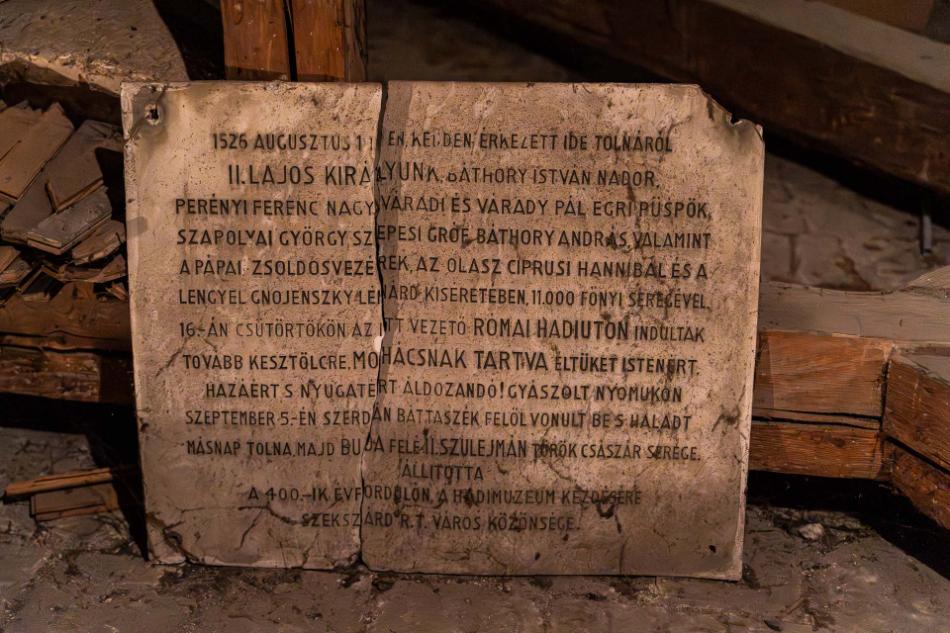 1526 AUGUSZTUS 1 ÉN, KEDDEN, ÉRKEZETT IDE TOLNÁRÓL
II. LAJOS KIRÁLYUNK, BÁTHORY ISTVÁN NÁDOR,
PERÉNYI FERENC NAGYVÁRADI ÉS VÁRADY PÁL EGRI PÜSPÖK,
SZAPOLYAI GYÖRGY SZEPESI GRÓF, BÁTHORY ANDRÁS, VALAMINT
A PÁPAI ZSOLDOSVEZÉREK, AZ OLASZ CIPRUSI HANNIBÁL ÉS A
LENGYEL GNOJENSZKY LÉNÁRD KISÉRETÉBEN, 11.000 FŐNYI SEREGÉVEL,
16.-ÁN CSÜTÖRTÖKÖN AZ ITT VEZETŐ RÓMAI HADIÚTON INDULTAK
TOVÁBB KESZTÖLCRE, MOHÁCSNAK TARTVA ÉLTÜKET ISTENÉRT,
HAZÁÉRT S NYUGATÉRT ÁLDOZANDÓ! GYÁSZOLT NYOMUKON
SZEPTEMBER 5-ÉN SZERDÁN BÁTTASZÉK FELŐL VONULT BE S HALADT
MÁSNAP TOLNA, MAJD BUDA FELÉ II. SZULEJMÁN TÖRÖK CSÁSZÁR SEREGE.
ÁLLÍTOTTA
A 400.-IK ÉVFORDULÓN, A HADIMÚZEUM KÉRDÉSÉRE
SZEKSZÁRD R.T. VÁROS KÖZÖNSÉGE.